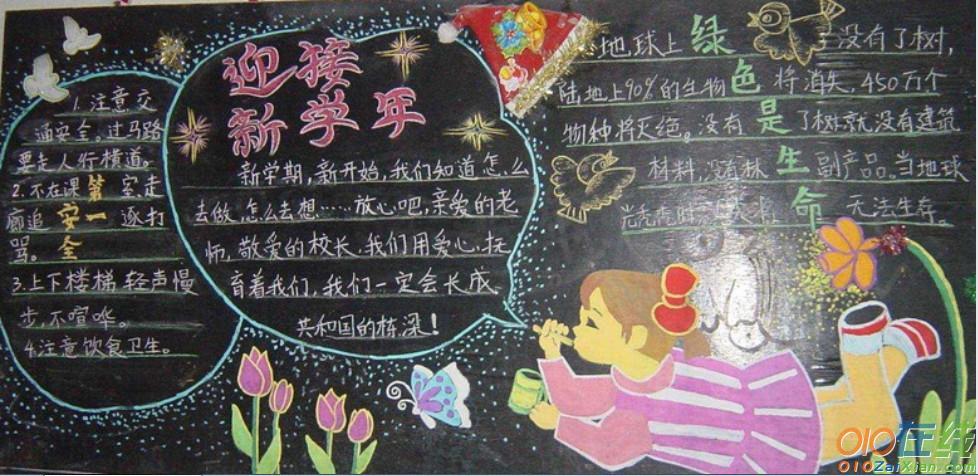 1.注意交
通安全。过马路
要走人行横道。
2.不在课室走
廊追逐打
骂。
3.上下楼梯,轻声慢
步,不喧哗。
4.注意饮食卫生。
安全第一
迎接
新学年
新学期,新开始,我们知道怎么
去做,怎么去想……放心吧,亲爱的老
师,敬爱的校长,我们用爱心,抚
育着我们,我们一定会长成
共和国的栋深!
绿色是生命
地球上没有了树,
陆地上90%的生物将消失,450万个
物种将灭绝。没有了树就没有建筑
材料,没有林副产品。当地球
光秃秃时
无法生存。
010在线
010ZaiXian.com